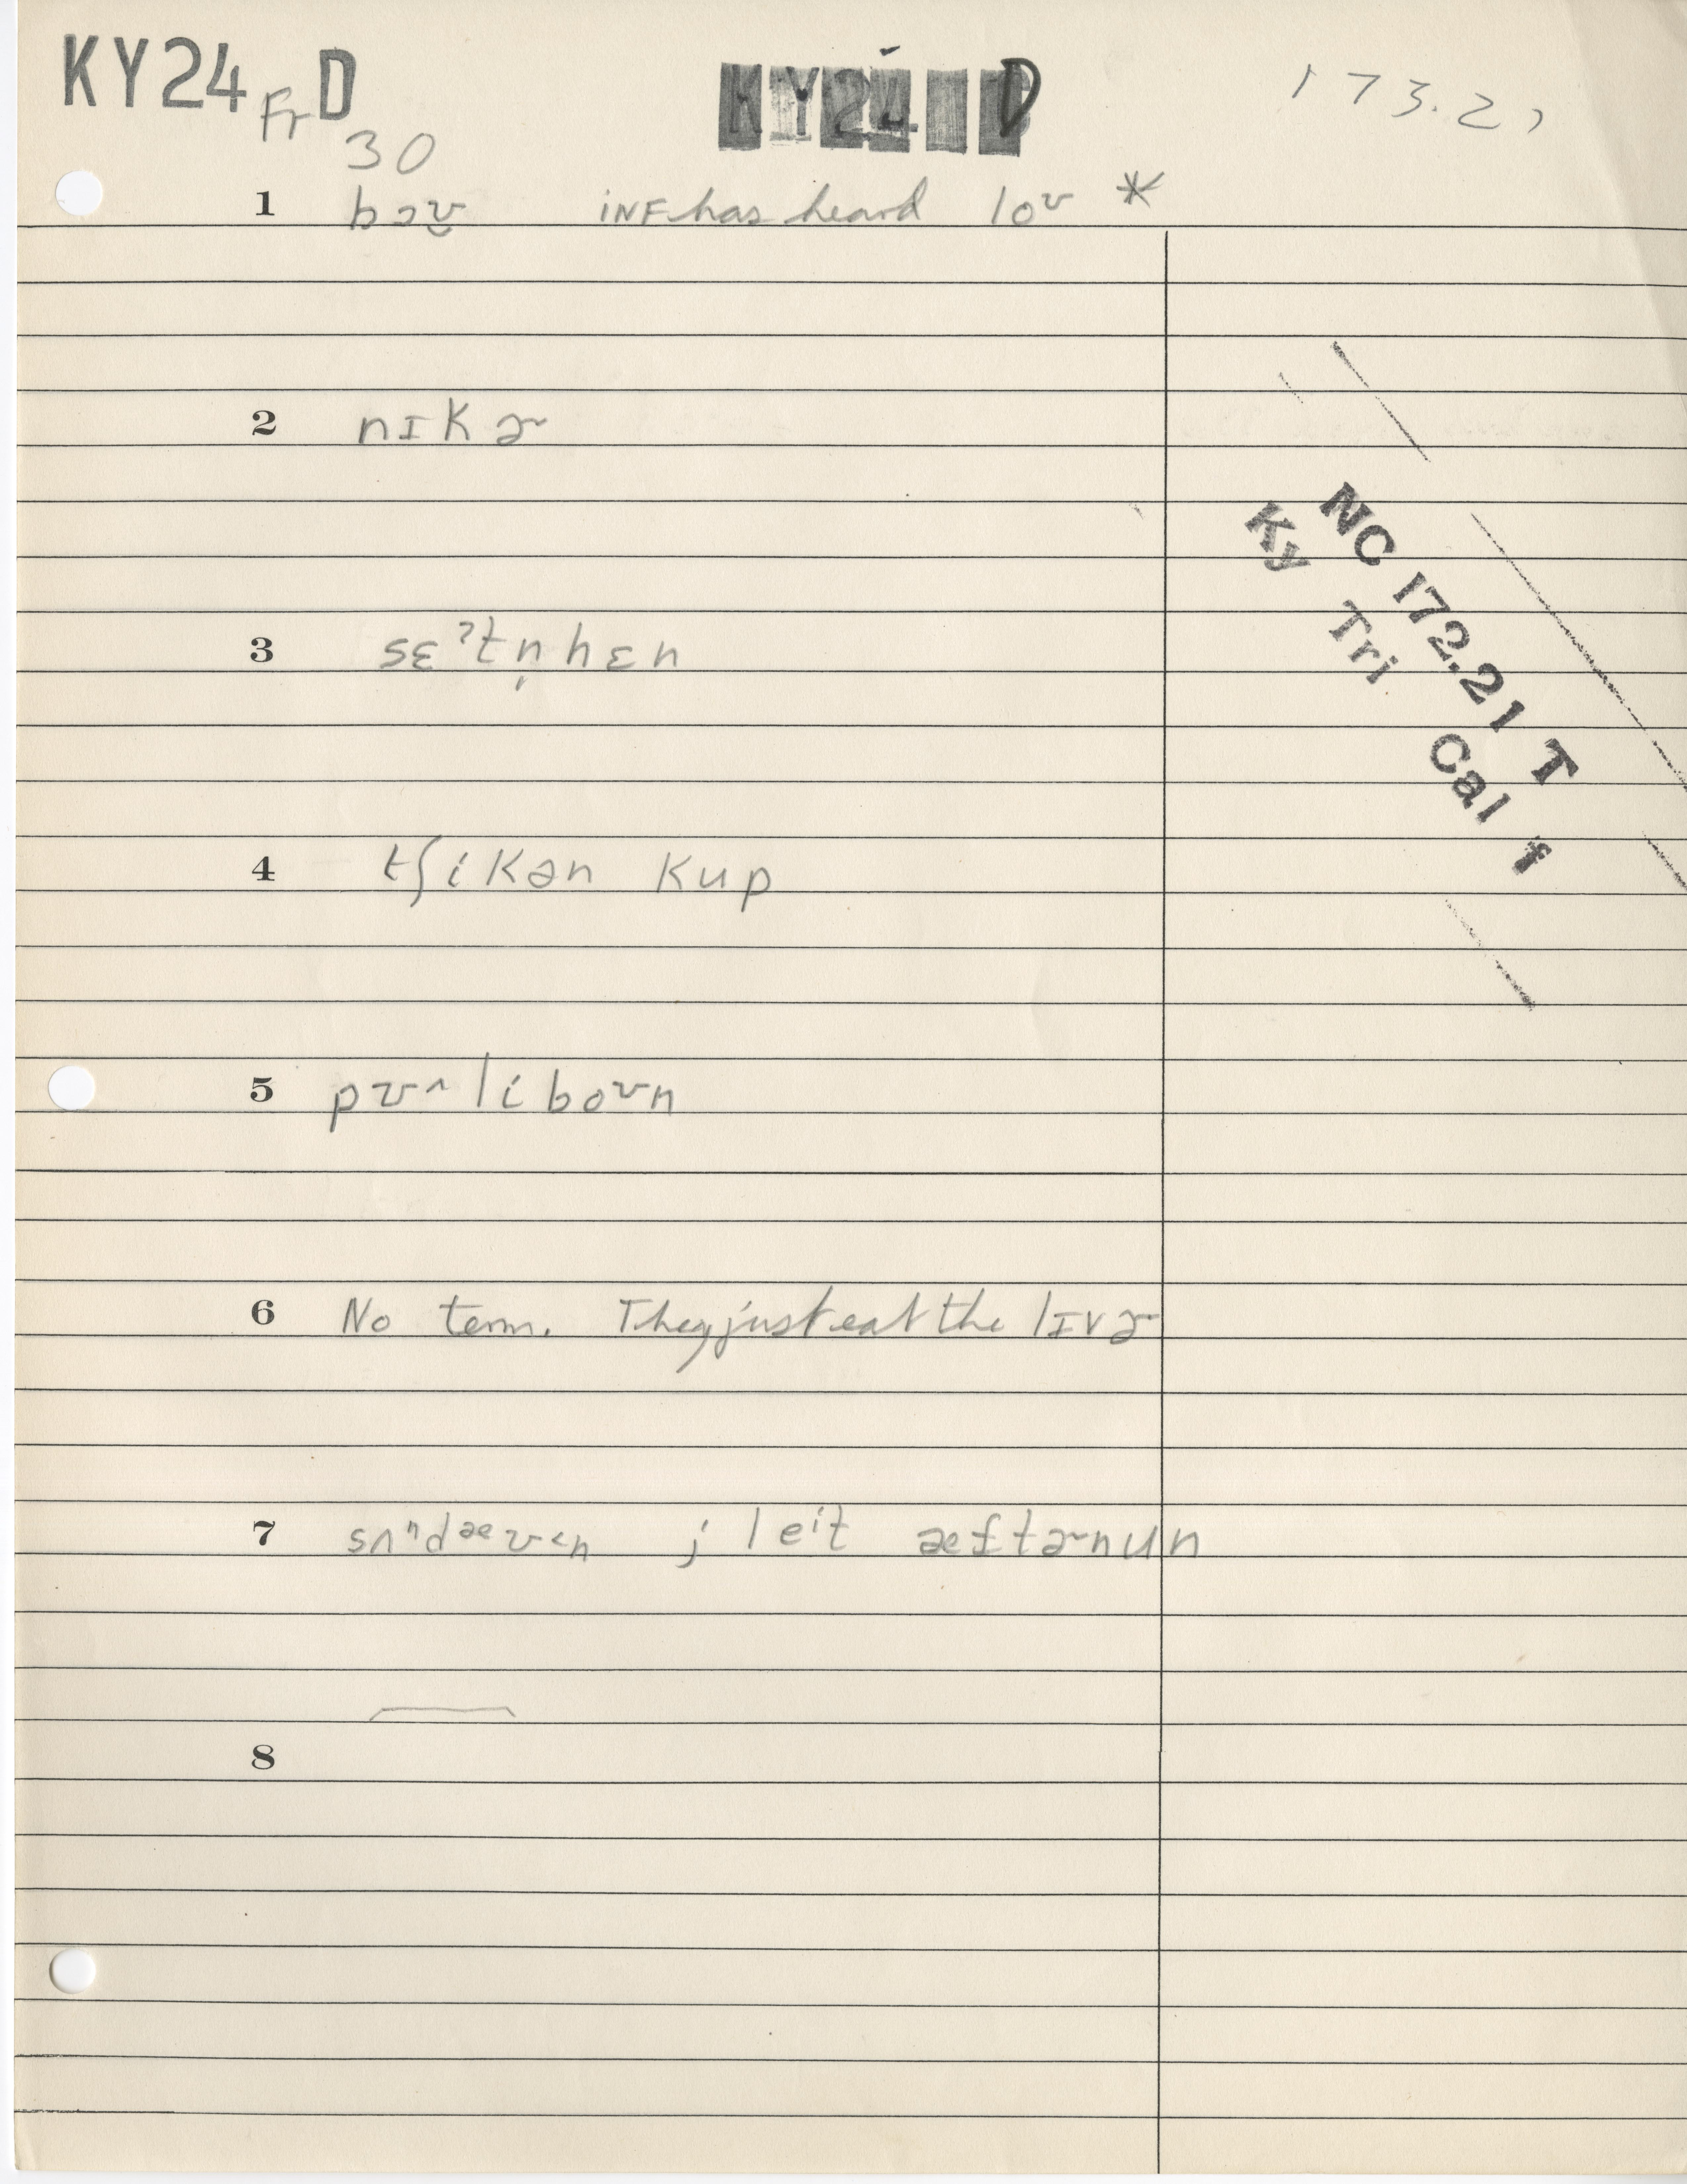 KY24 Fr D
30
KY24 D
1 bɔʊ̯ INF has heard loʊ *
2 nɪkɚ
3 sɛˀtn̩hɛn
4 tʃikən kup
NC 172.21 T
Ky Tri Cal f
5 pʊ^liboʊn
6 No term. They just eat the lɪvɚ
7 sʌⁿdæʊ<n ; leit æftɚnun
8